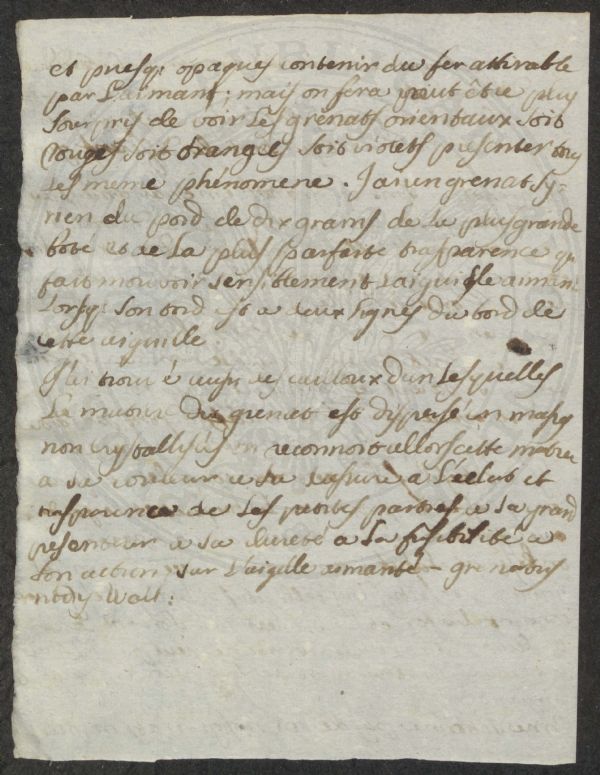 et presq; opaques contenir du fer attirable
par l'aimant; mais on fera peut être plus
surpris de voir les grenats orientaux soit
rouges soit oranges soit violets presenter tous
les meme phénomene. J'ai un grenat sy-
rien du poid de dix grains de la plus grande
et de la plus parfaite trasparence qui
fait mouvoir sensiblement l'aiguille aiman
lorsq; son bord est a deux lignes du bord de
cette aiguille
J'ai trouvé aussi des cailloux dans lesquelles
la matiere du grenat est dispersé en masse
non crystallisés on reconnoit allors cette matiere
a sa couleur a sa cassure a l'eclat et
trasparence de ses petites parties a sa grand
pesenteur a sa dureté a la fusibilité a
son action sur l'aiguille aimanté -